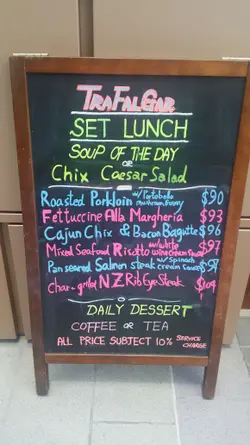 TRAFALGAR
SET LUNCH
SOUP OF THE DAY
OR
Chix Caesar Salad
Roasted Porkloin w/Portobello mushroom $90
Fettuccine Alla Margheria $93
Cajun Chix & Bacon Bagutte $96
Mixed Seafood Risotto w/white wine cream sauce $97
Pan seared Salmon steak w/spinach cream sauce
char-grilled NZ Rib Eye Steak $109
DAILY DESSERT
COFFEE OR TEA
ALL PRICE SUBJECT 10% SERVICE CHARGE